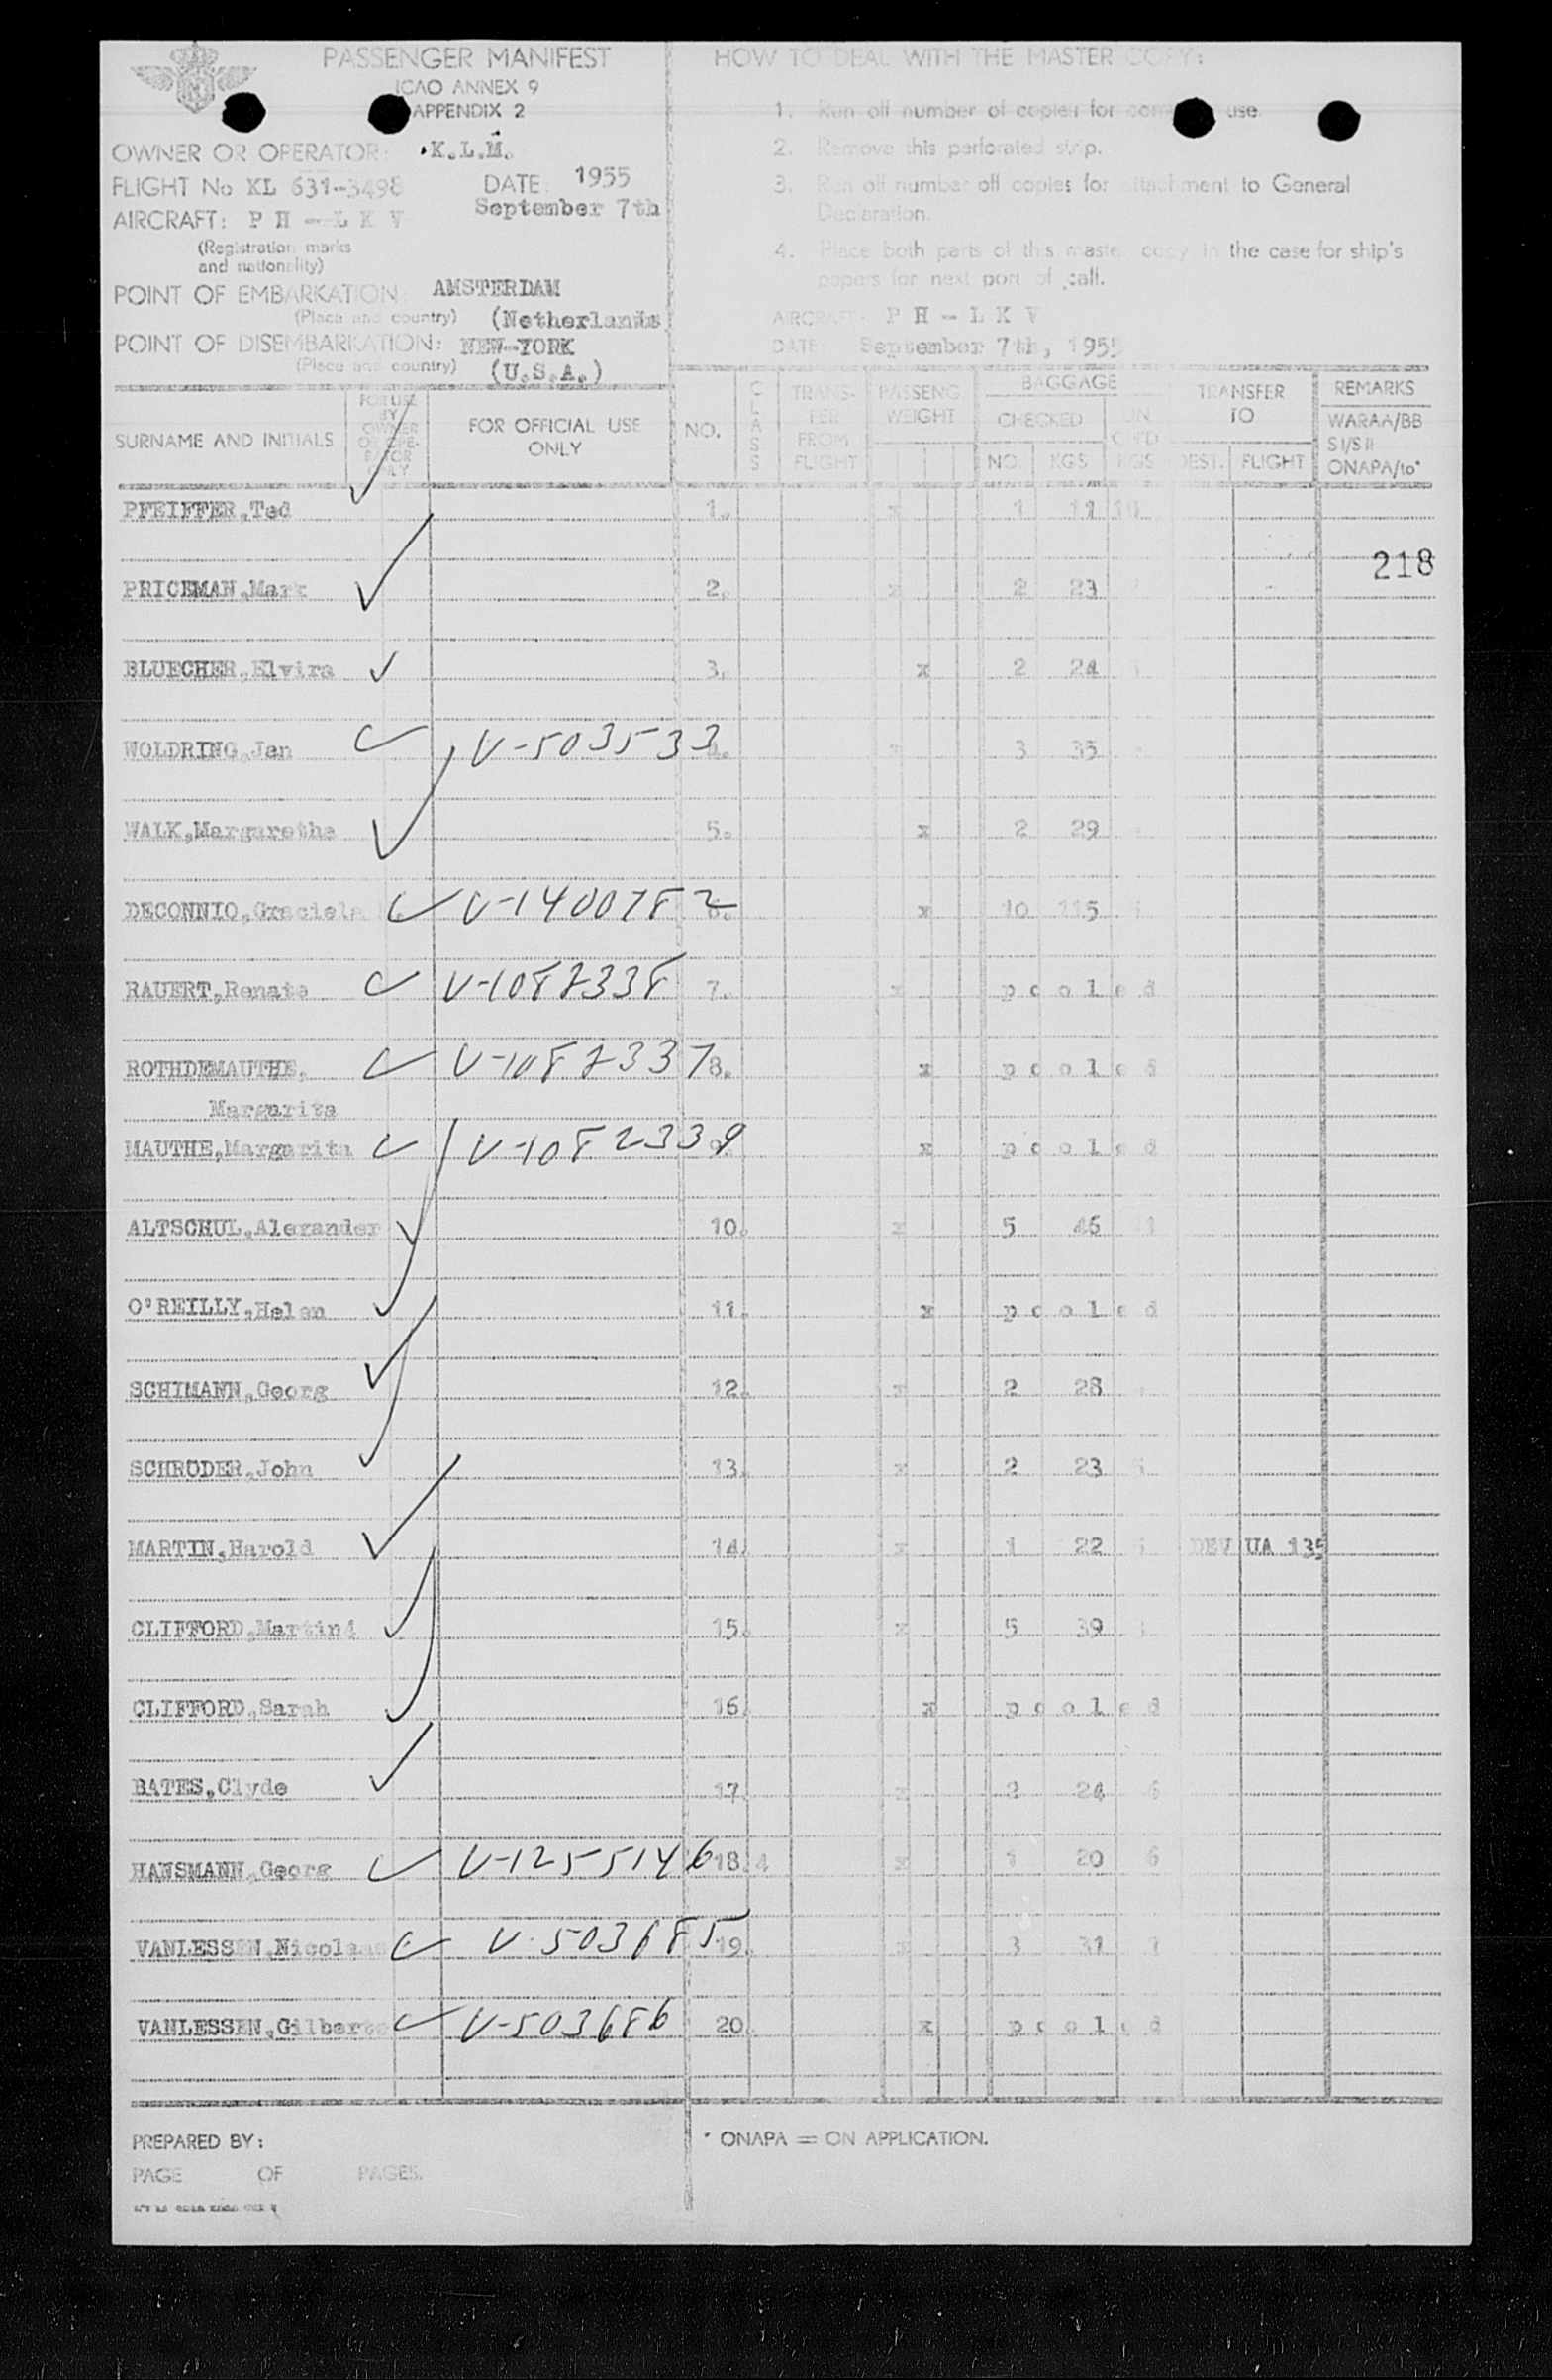 PASSENGER MANIFEST
ICAO ANNEX 9
APPENDIX 2
OWNER OR OPERATOR: K.L.M.
FLIGHT No KL 631-3498 DATE: 1955
September 7th
AIRCRAFT: P H - L K V
(Registration marks
and nationality)
POINT OF EMBARKATION: AMSTERDAM
(Place and country) (Netherlands
POINT OF DISEMBARKATION: NEW-YORK
(Place and country) (U.S.A.)
HOW TO DEAL WITH THE MASTER COPY:
1. Run off number of copies for use
2. Remove this perforated strip.
3. Run off number off copies for attachment to General
Declaration.
4. Place both parts of this master copy in the case for ship's
papers for next port of call.
AIRCRAFT: P H - L K V
DATE: September 7th, 1955
SURNAME AND INITIALS
FOR USE
BY
OWNER
OR OPE-
RATOR
ONLY
FOR OFFICIAL USE
ONLY
NO.
CLASS
TRANS-
FER
FROM
FLIGHT
PASSENG.
WEIGHT
BAGGAGE
CHECKED
NO. KGS
UN
C'K'D
KGS
TRANSFER
TO
DEST. FLIGHT
REMARKS
WARAA/BB
S I/S II
ONAPA/to*
PFEIFFER,Ted 1. x 1 11 10
218
PRICEMAN,Mark 2. x 2 23
BLUECHER,Elvira 3. x 2 24
WOLDRING,Jan V-503533 4. x 3 35
WALK,Margarethe 5. x 2 29
DECONNIO,Graciela V-1400782 6. x 10 115
RAUERT,Renate V-1082338 7. x pooled
ROTHDEMAUTHE, V-1082337 8. x pooled
Margarita
MAUTHE,Margarita V-1082339 9. x pooled
ALTSCHUL,Alexander 10. x 5 46
O'REILLY,Helen 11. x pooled
SCHIMANN,Georg 12. x 2 28
SCHRODER,John 13. x 2 23
MARTIN,Harold 14. x 1 22 DEV UA 135
CLIFFORD,Martin 15. x 5 39
CLIFFORD,Sarah 16. x pooled
BATES,Clyde 17. x 2 24 6
HANSMANN,Georg V-1255146 18. 4 x 1 20 6
VANLESSEN,Nicolaas V-503685 19. x 3 31
VANLESSEN,Gilberte V-503686 20. x pooled
PREPARED BY:
PAGE OF PAGES.
* ONAPA = ON APPLICATION.